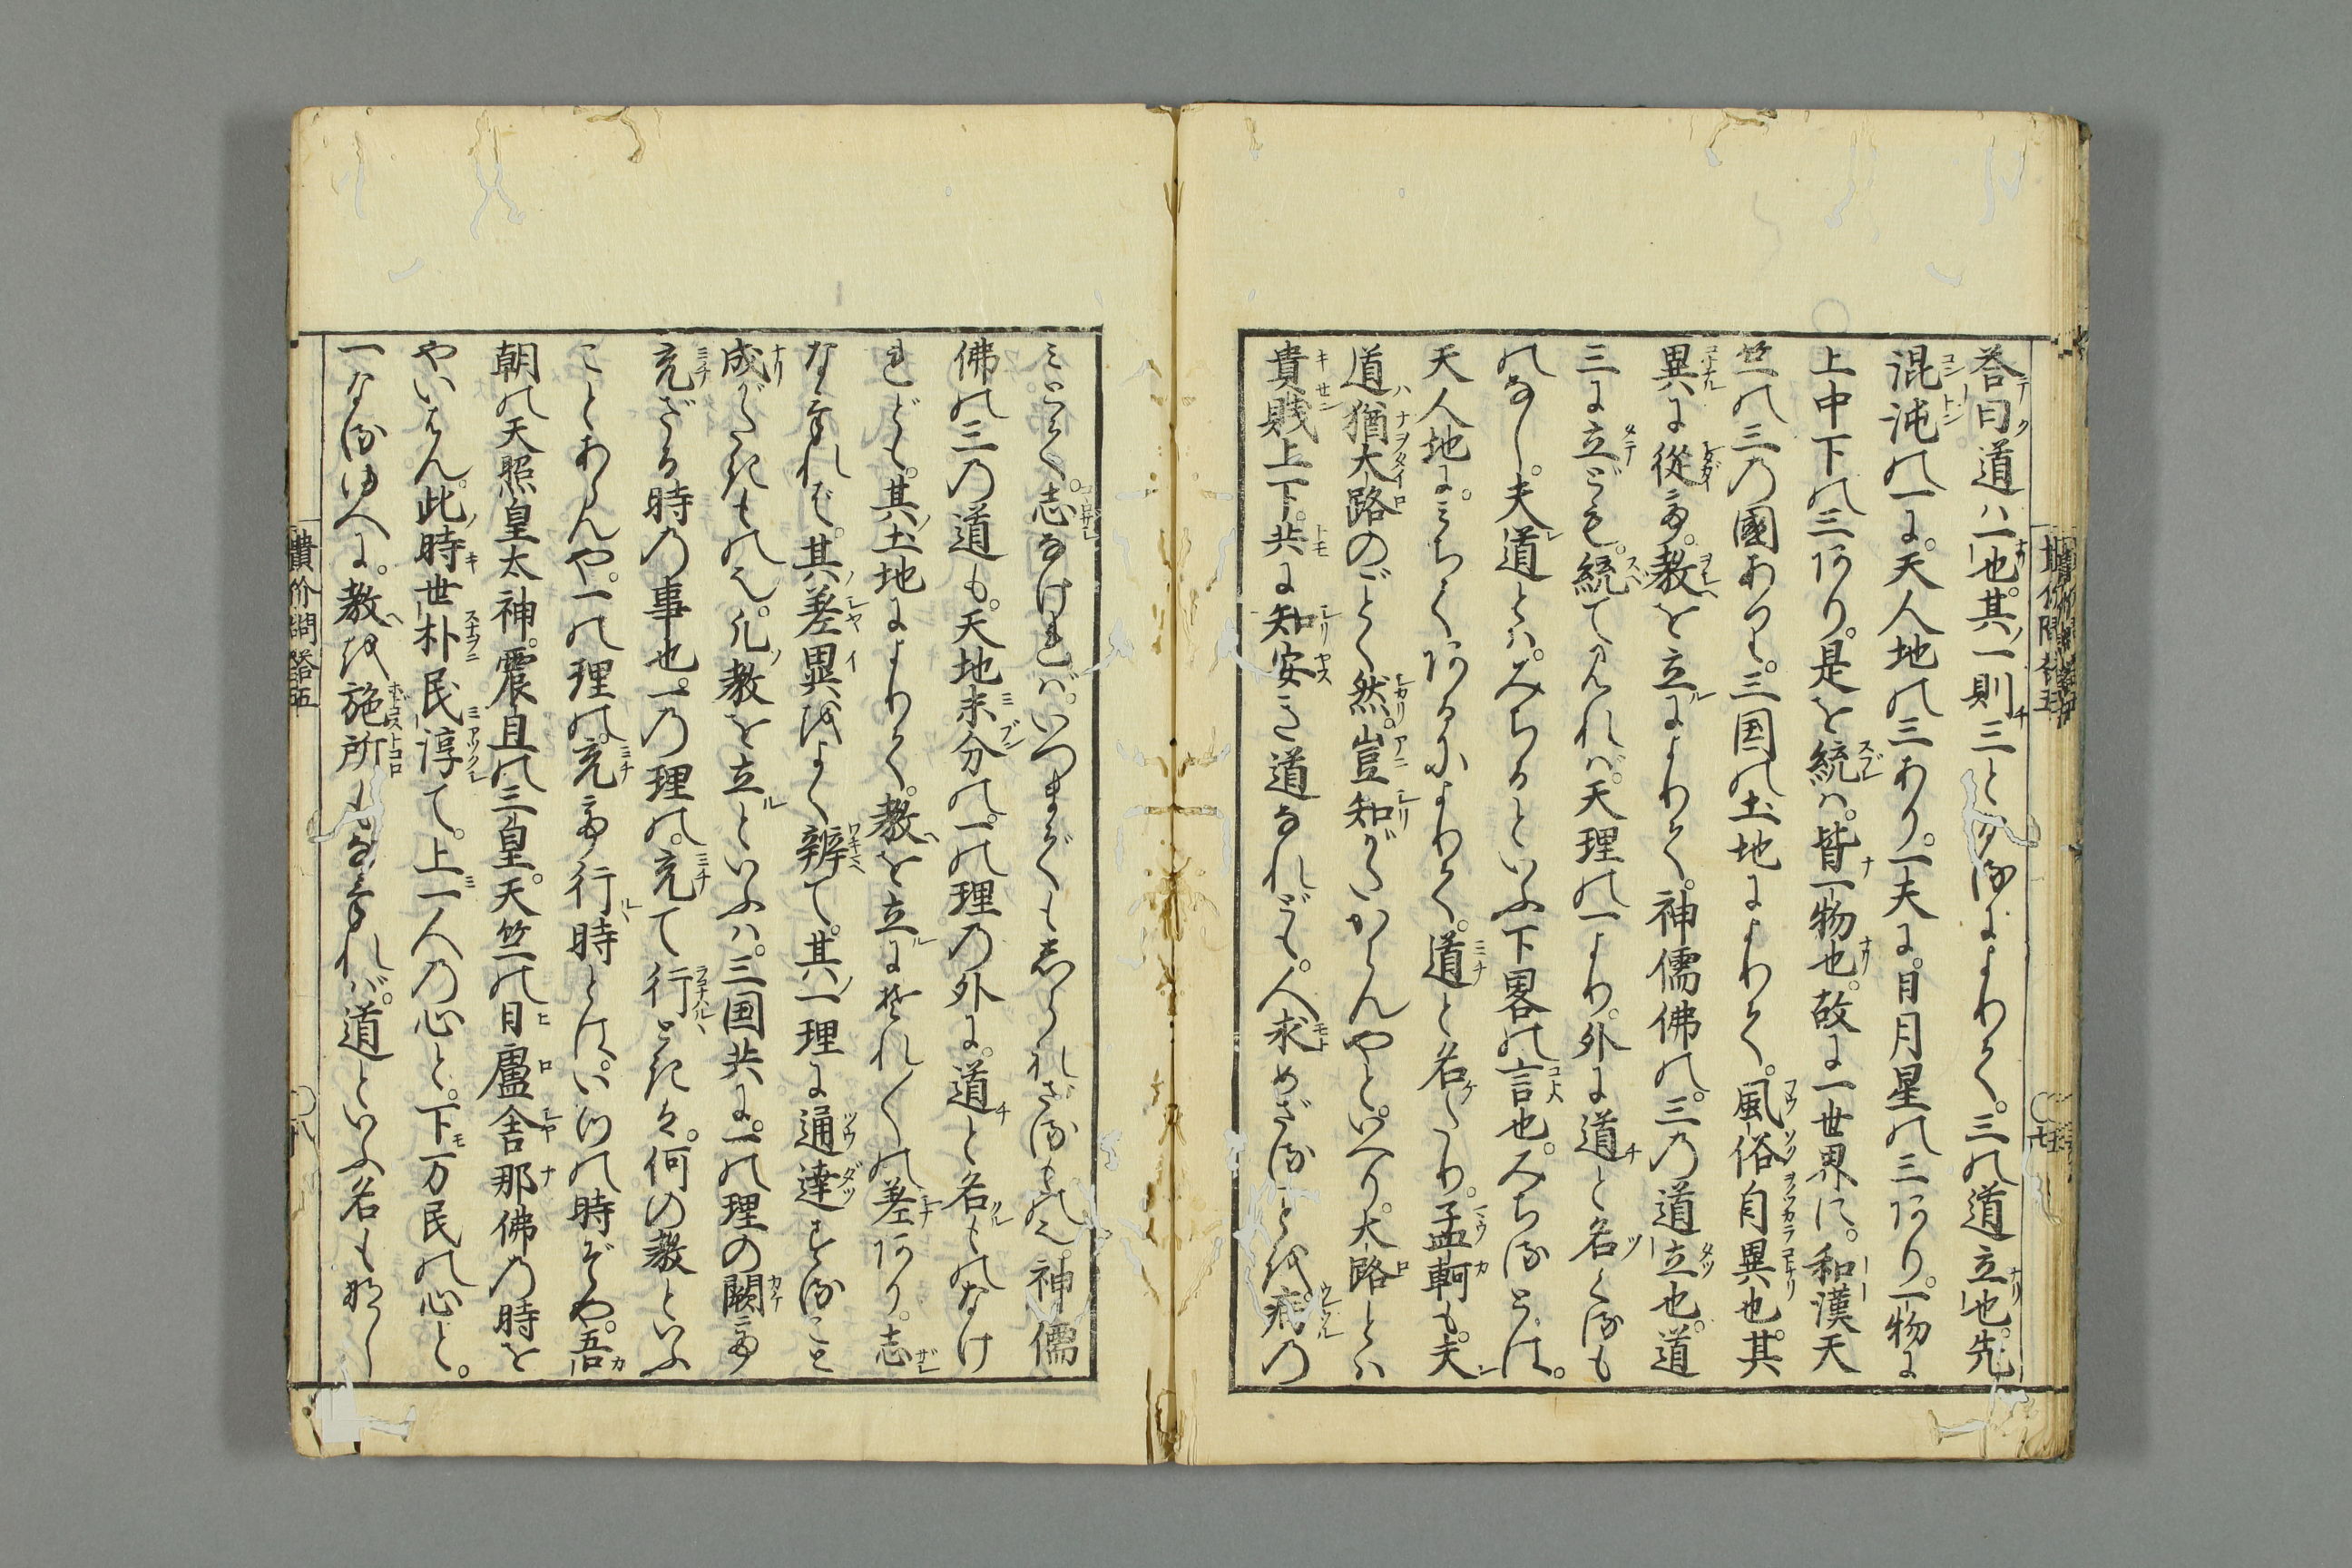 答曰道ハ一也。其一則三となるによりて。三の道立也。先
混沌の一に。天人地の三あり。一夫に。日月星の三あり。一物に
上中下の三あり。是を統ハ。皆一物也。故に一世界に。和漢天
竺の三乃國あつて。三国の土地によりて。風俗自異也。其
異に從て。教を立によりて。神儒佛の。三乃道立也。道
三に立ども。統て見れバ。天理の一より。外に道と名くるも
のなし。夫道とハ。みちるといふ下畧の言也。みちるとは。
天人地に。みちてあるによりて。道と名けたり。孟軻も。夫
道猶大路のごとく然。豈知がたからんやと。いへり。大路とハ
貴賎上下。共に知安き道なれども。人求めざることを病乃
みにて。志なければ。いつまでも しられざるもの也。神儒
佛の三乃道も。天地未分の。一の理乃外に。道と名ものなけ
れども。其土地によりて。教を立にそれ〱の差あり。志
なければ。其差異をよく辨て。其一理に通達すること
成がたきもの也。凡教を立といふハ。三国共に。一の理の闕て
充ざる時乃事也。一乃理の。充て行ときは。何の教といふ
ことあらんや。一の理の。充て行時とは。いつの時ぞや。吾
朝の天照皇太神。震旦の三皇。天竺の日盧舎那佛乃時を
やいはん。此時世朴民淳て。上一人乃心と。下万民の心と。
一なるゆへに。教を施所もなければ。道といふ名もなし